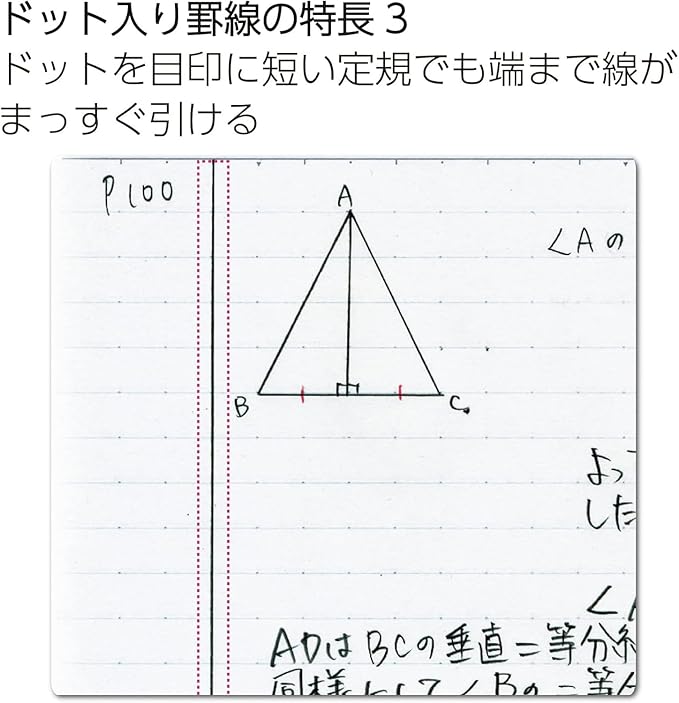 ドット入り罫線の特長 3
ドットを目印に短い定規でも端まで線が
まっすぐ引ける
P100
A
∠Aの
B
C
よっ
した
∠A
ADはBCの垂直=等分
同様にして∠Bの=等分